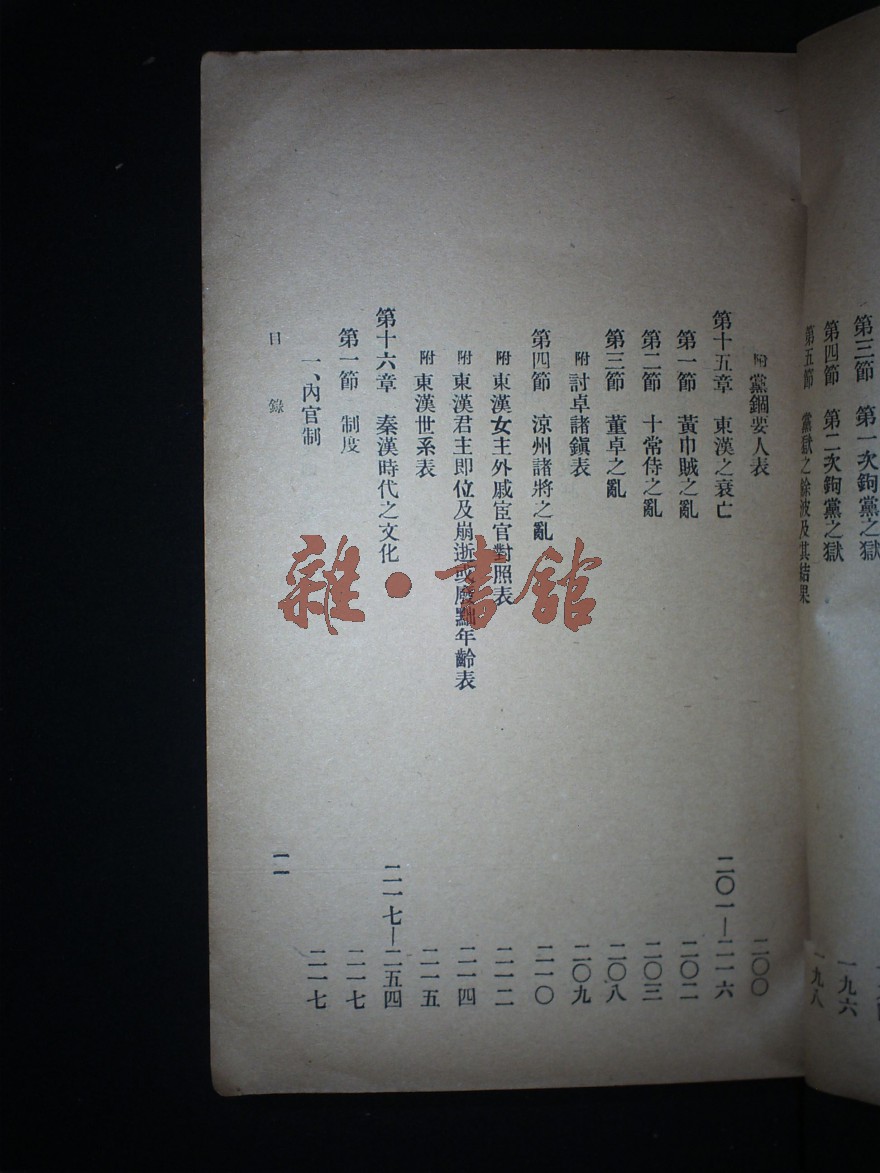 第三節　第一次鉤黨之獄
第四節　第二次鉤黨之獄　一九六
第五節　黨獄之餘波及其結果　一九八
附　黨錮要人表　二〇〇
第十五章　東漢之衰亡　二〇一—二一六
第一節　黃巾賊之亂　二〇二
第二節　十常侍之亂　二〇三
第三節　董卓之亂　二〇八
附　討卓諸鎮表　二〇九
第四節　涼州諸將之亂　二一〇
附　東漢女主外戚宦官對照表　二一二
附　東漢君主即位及崩逝或廢黜年齡表　二一四
附　東漢世系表　二一五
第十六章　秦漢時代之文化　二一七—二五四
第一節　制度　二一七
一、內官制　二一七
目錄　一一
雜·書館